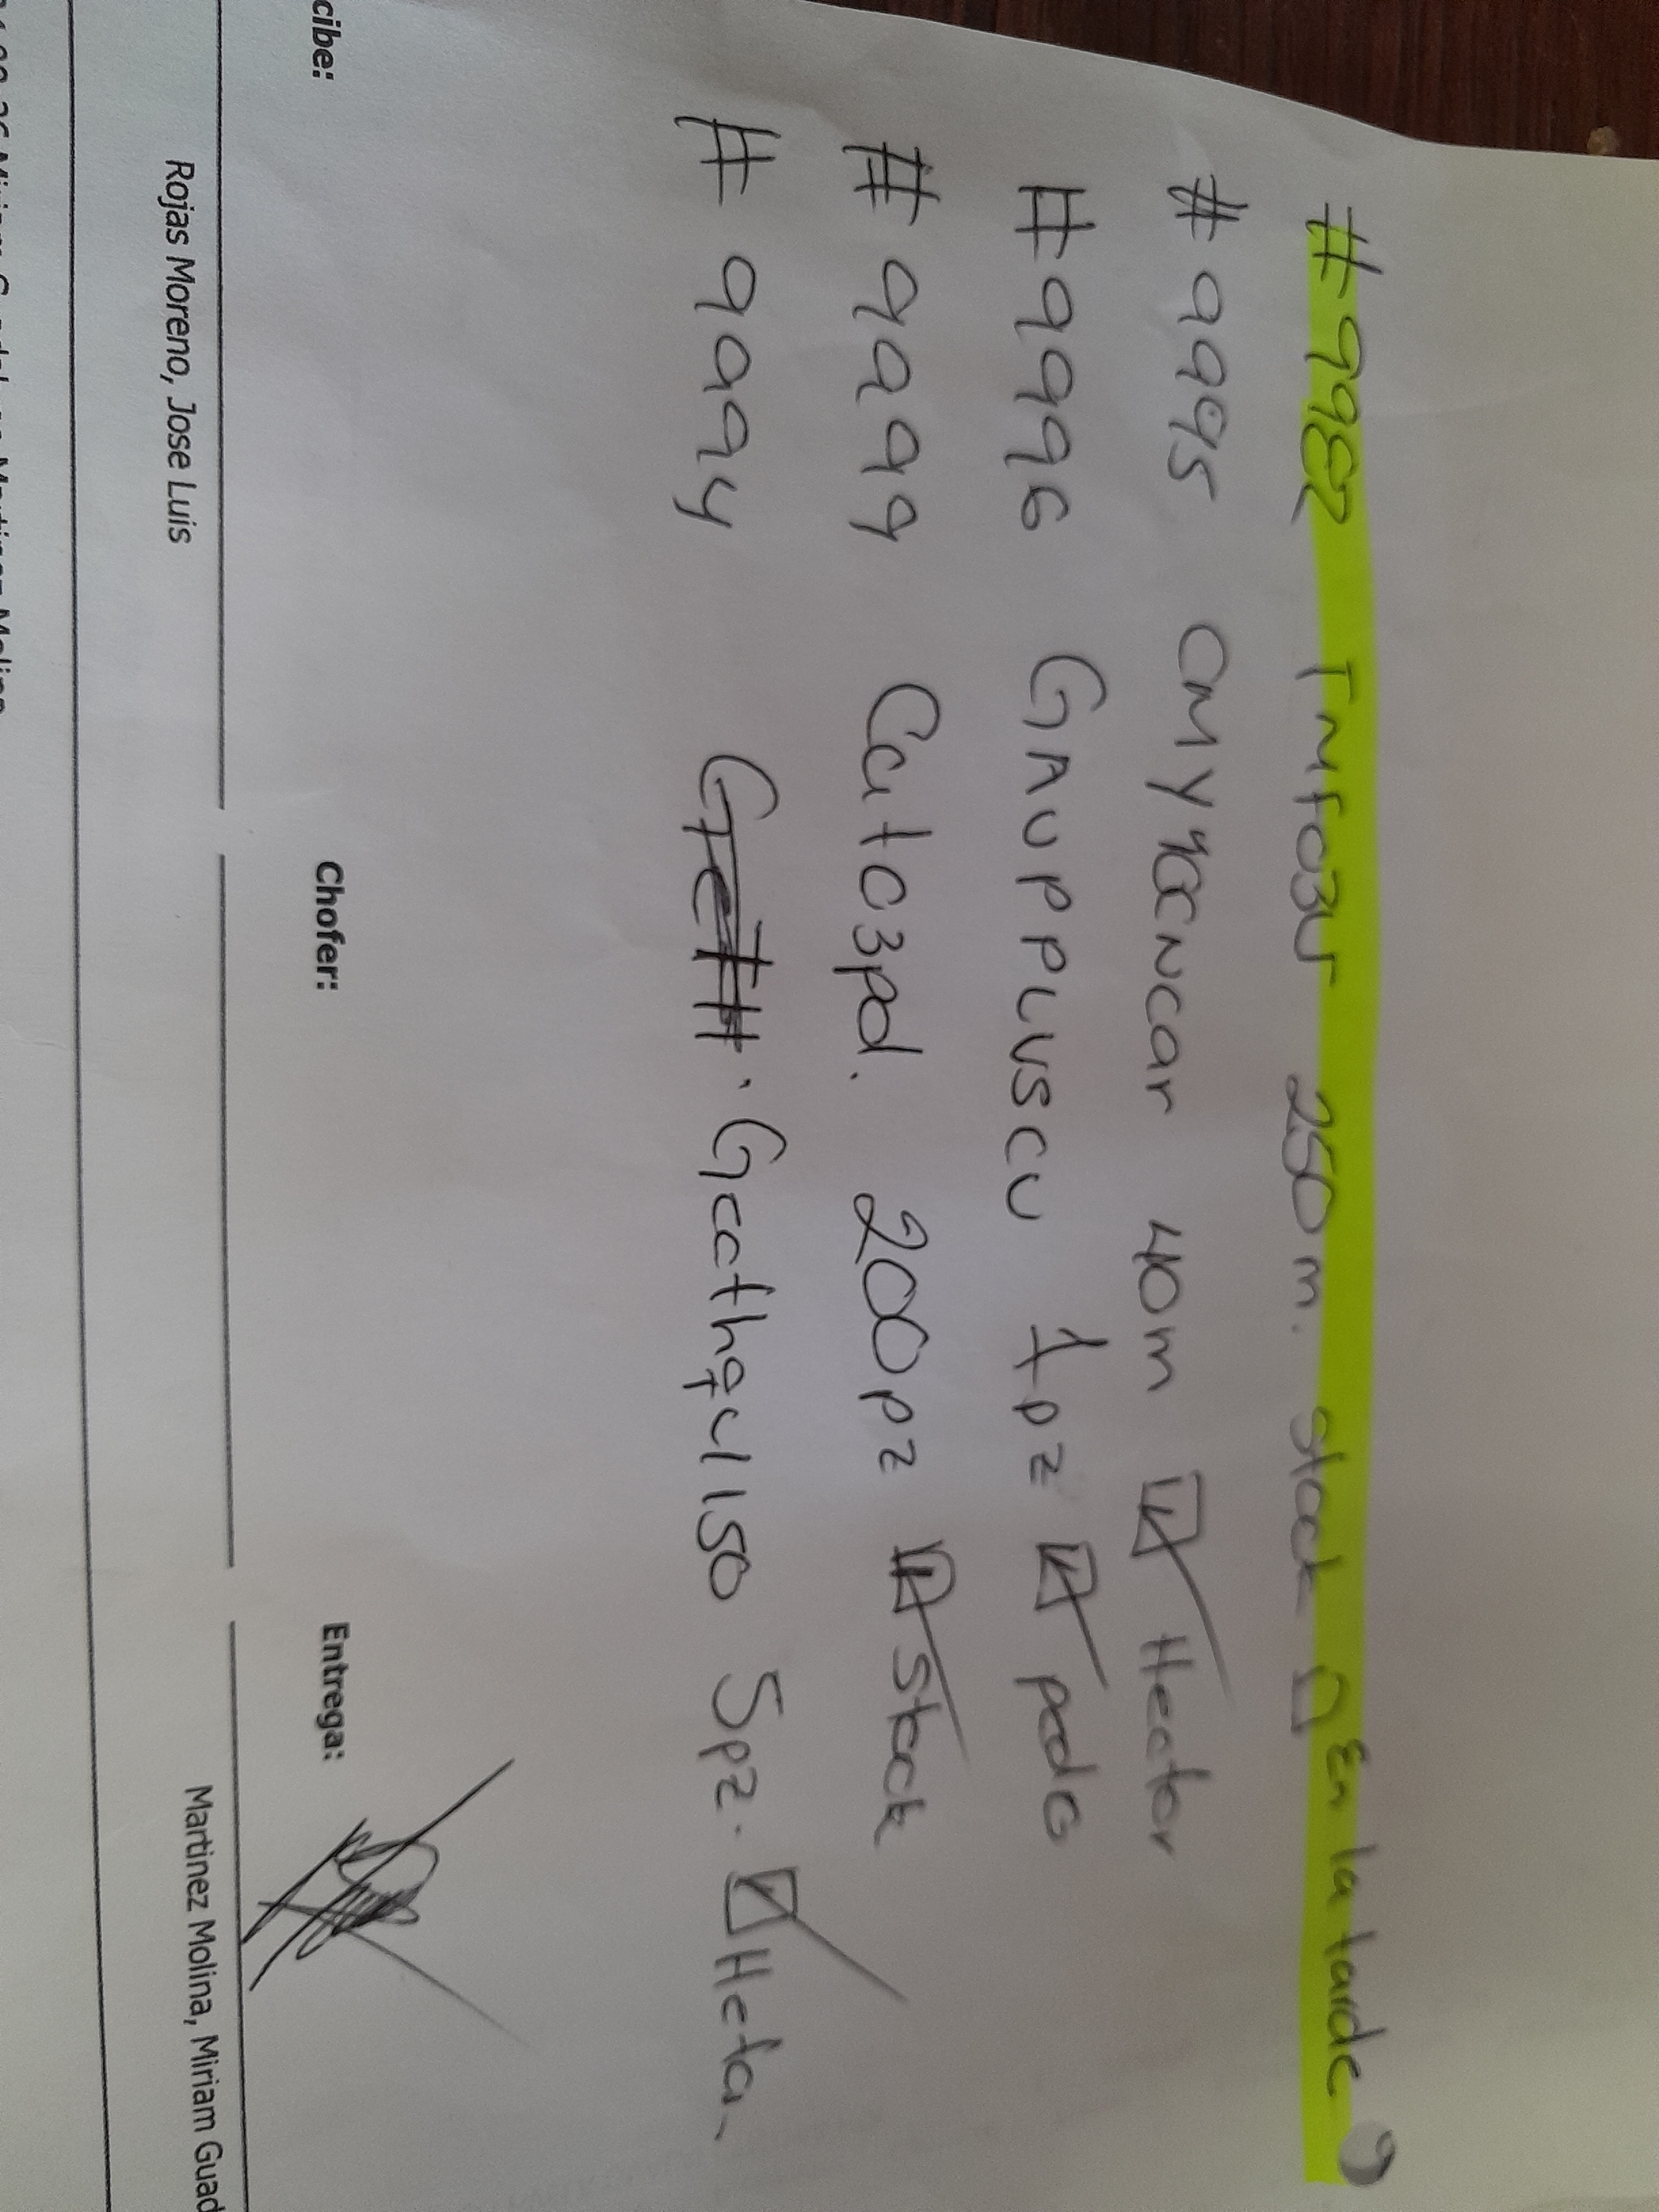 #9982 Tmfo3ur 250m. stock □ En la tarde
#9995 CMY40CNCar 40m ☑ Hector
#9996 GAUPPLUSCU 1pz ☑ pedo
#9999 Cuto3pd. 200pz ☑ Stock
#9994 Gccthqu150 5pz. ☑ Heta.
cibe: Chofer: Entrega:
Rojas Moreno, Jose Luis Martinez Molina, Miriam Guad